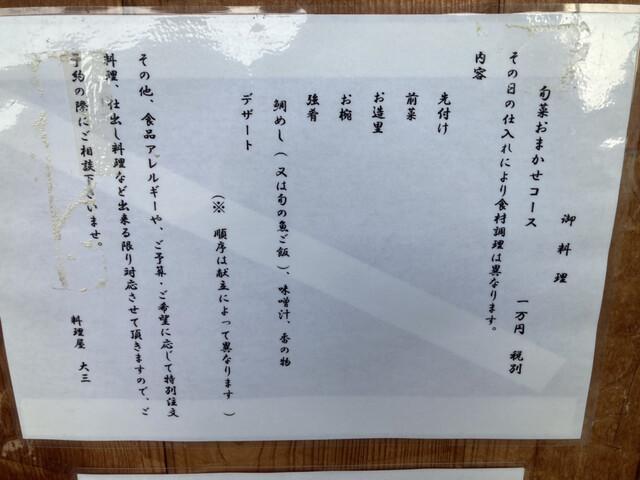 御料理
旬菜おまかせコース 一万円 税別
その日の仕入れにより食材調理は異なります。
内容
先付け
前菜
お造里
お椀
強肴
鯛めし（又は旬の魚ご飯）、味噌汁、香の物
デザート
（※ 順序は献立によって異なります ）
その他、食品アレルギーや、ご予算・ご希望に応じて特別注文
料理、仕出し料理など出来る限り対応させて頂きますので、ご
予約の際にご相談下さいませ。
料理屋 大三